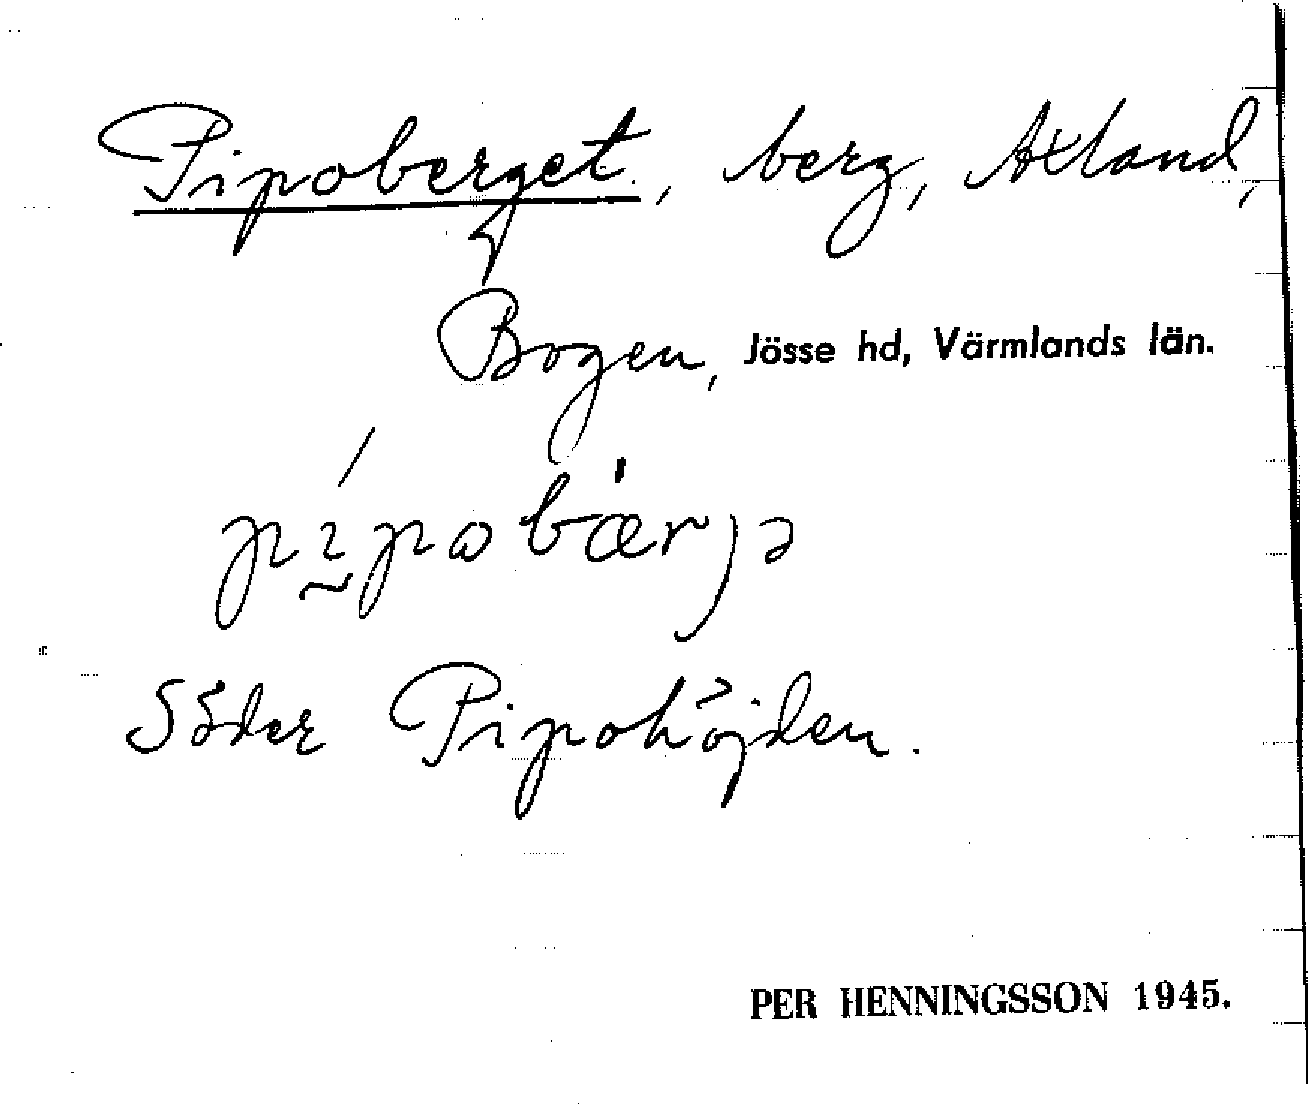 Pipoberget, berg, Axland,
Bogen, Jösse hd, Värmlands län.
pípωbærjə
Söder Pipohöjden.
PER HENNINGSSON 1945.